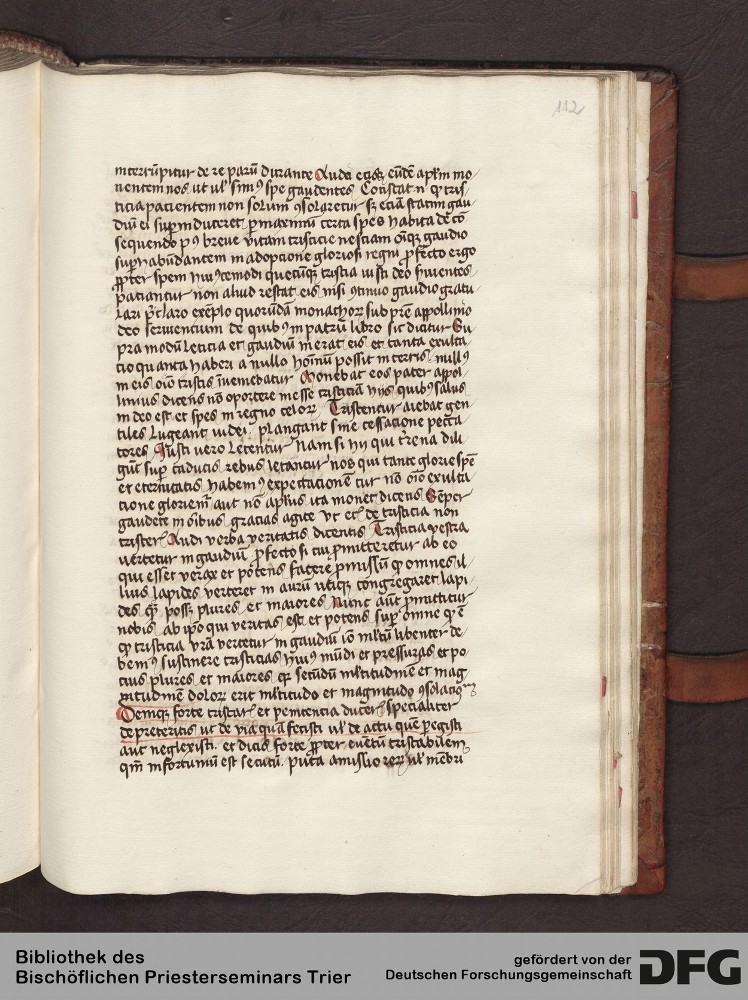 112
interrūpitur de re parū durante Audi eciā eūdē aplm mo
nentem nos ut ul' simꝰ spe gaudentes Constat n̄ qͥ tris
ticia pacientem non solum ꝯsolaretur sꝫ eciā statim gau
diū ei suꝑinduceret ꝑ maximū certa spes habita de cō
sequendo pꝰ breue vitam tristicie nesciam oīqꝫ gaudio
suꝑhabūdantem in adopcione gloriosi regni ꝓfecto ergo
ꝓpter spem huiꝰcemodi quecūqꝫ tristia iusti deo seruientes
paciantur non aliud restat eis nisi ꝯtinuo gaudio gratu
lari p̄claro exēplo quorūdā monachoꝝ sub pr̄e appollinio
deo seruiencium de quibꝰ in patrū libro sic dicitur Su
pra modū leticia et gaudiū inerat eis et tanta exulta
cio quanta haberi a nullo hoīnū possit in terris nullꝰ
in eis oīo tristis īueniebatur Monebat eos pater appol
linius dicens nō oportere inesse tristiciā hijs quibꝰ salus
in deo est et spes in regno celoꝝ Tristentur aiebat gen
tiles Lugeant iudei plangant sine cessacione pecca
tores Iusti uero letentur Nam si hij qui t̄rena dili
gūt suꝑ caducis rebus letantur nos qui tante glorie spē
et eternitatis habemꝰ expectacionē cur nō oīo exulta
cione gloriem̄ aut nō aplus ita monet dicens Semper
gaudete in oībus gracias agite Ut ecͥ de tristicia non
tristeris Audi verba veritatis dicentis Tristicia vestra
vertetur in gaudiū ꝓfecto si cui ꝓmitteretur ab eo
qui esset verax et potens facere ꝓmissū ꝙ omnes il
lius lapides verteret in aurū utiqꝫ congregaret lapi
des qͣ possꝫ plures et maiores Nunc aut̄ ꝓmittitur
nobis ab ip̄o qui veritas est et potens suꝑ omne qͦ ē
ꝙ tristicia vrā vertetur in gaudiū iō ml̄tū libenter de
bemꝰ sustinere tristicias huiꝰ mūdi et pressuras et po
cius plures et maiores qꝫ secūdū ml̄titudinē et mag
nitudinē doloꝝ erit ml̄titudo et magnitudo ꝯsolacionū
Deniqꝫ forte tristaris et penitencia duceris specialiter
de preteritis ut de via quā fecisti ul' de actu quē ꝑegisti
aut neglexisti et dicis forte ꝓpter euētū tristabilem
qm̄ infortuniū est secutū puta amissio reꝝ ul' mēbri
Bibliothek des
Bischöflichen Priesterseminars Trier
gefördert von der
Deutschen Forschungsgemeinschaft
DFG